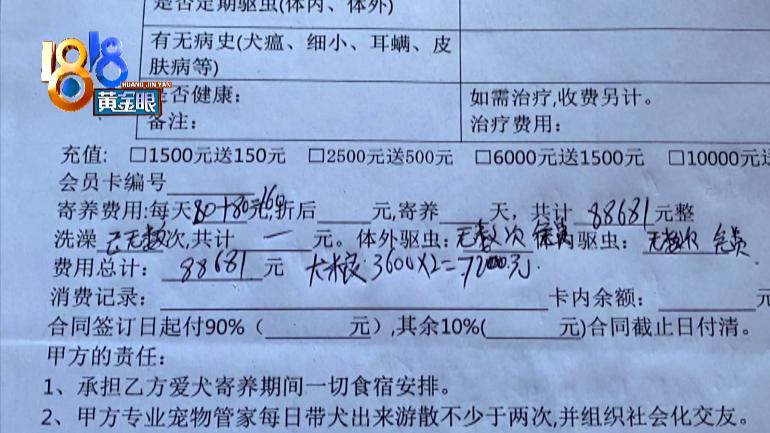 是否定期驱虫(体内、体外)
有无病史(犬瘟、细小、耳螨、皮
肤病等)
1818
HUANG JIN YAN
黄金眼
是否健康：
备注：
如需治疗,收费另计。
治疗费用：
充值: □1500元送150元 □2500元送500元 □6000元送1500元 □10000元送
会员卡编号
寄养费用:每天80+80元,折后 160 元,寄养 天, 共计 88681元整
洗澡 无数次,共计 一 元。体外驱虫: 无数次 体内驱虫: 无数次
费用总计: 88681 元 犬粮：3600×2=7200元.
消费记录: 卡内余额: 元
合同签订日起付90%( 元),其余10%( 元)合同截止日付清。
甲方的责任:
1、承担乙方爱犬寄养期间一切食宿安排。
2、甲方专业宠物管家每日带犬出来游散不少于两次,并组织社会化交友。